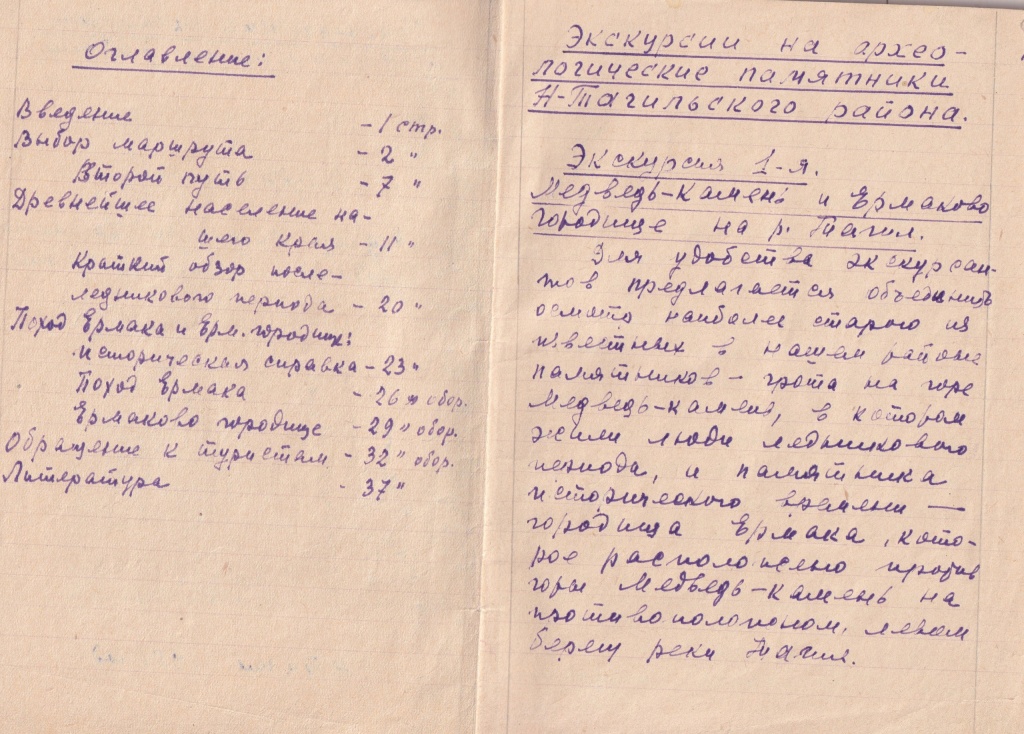 Оглавление:
Введение - 1 стр.
Выбор маршрута - 2 "
Второй путь - 7 "
Древнейшее население на-
шего края - 11 "
Краткий обзор после-
ледникового периода - 20 "
Поход Ермака и Ерм. городищ:
историческая справка - 23 "
Поход Ермака - 26 " обор.
Ермаково городище - 29 " обор.
Обращение к туристам - 32 " обор.
Литература - 37 "
Экскурсии на архео-
логические памятники
Н-Тагильского района.
Экскурсия 1-я.
Медведь-Камень и Ермаково
городище на р. Тагил.
Для удобства экскурсан-
тов предлагается объединить
осмотр наиболее старого из
известных в нашем районе
памятников - грота на горе
Медведь-Камень, в котором
жили люди ледникового
периода, и памятника
исторического времени —
городища Ермака, кото-
рое расположено против
горы Медведь-Камень на
левом
берегу реки Тагил.